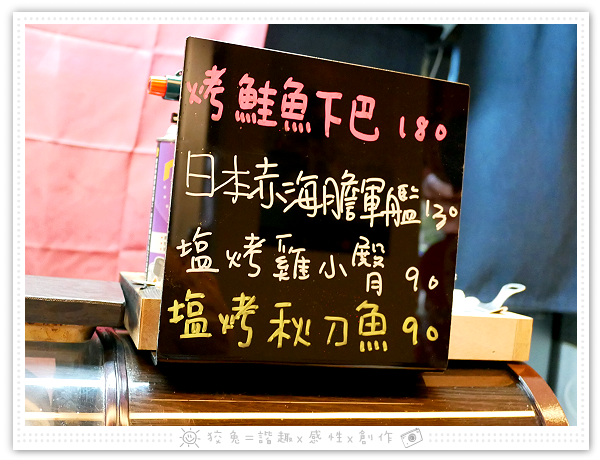 烤鮭魚下巴 180
日本赤海膽軍艦 130
塩烤雞小臀 90
塩烤秋刀魚 90
狡兔=諧趣x感性x創作